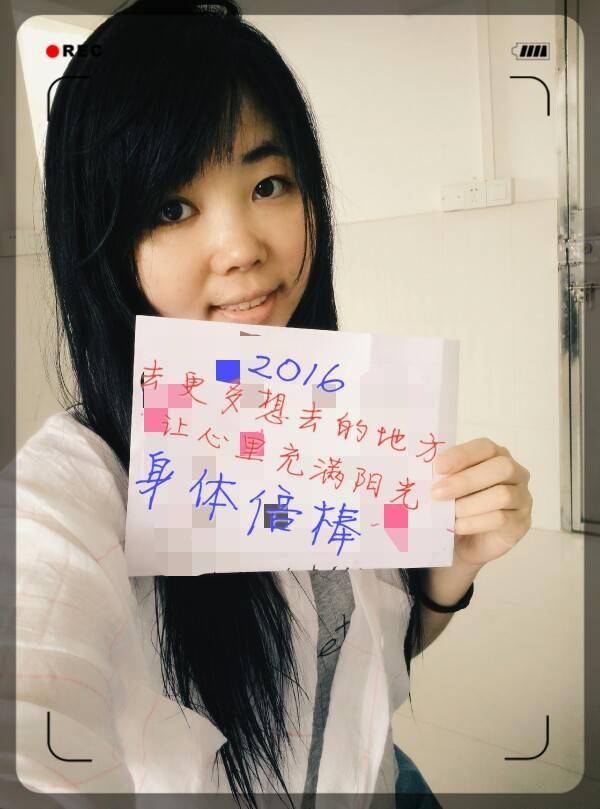 REC
2016
去更多想去的地方
让心里充满阳光
身体倍棒